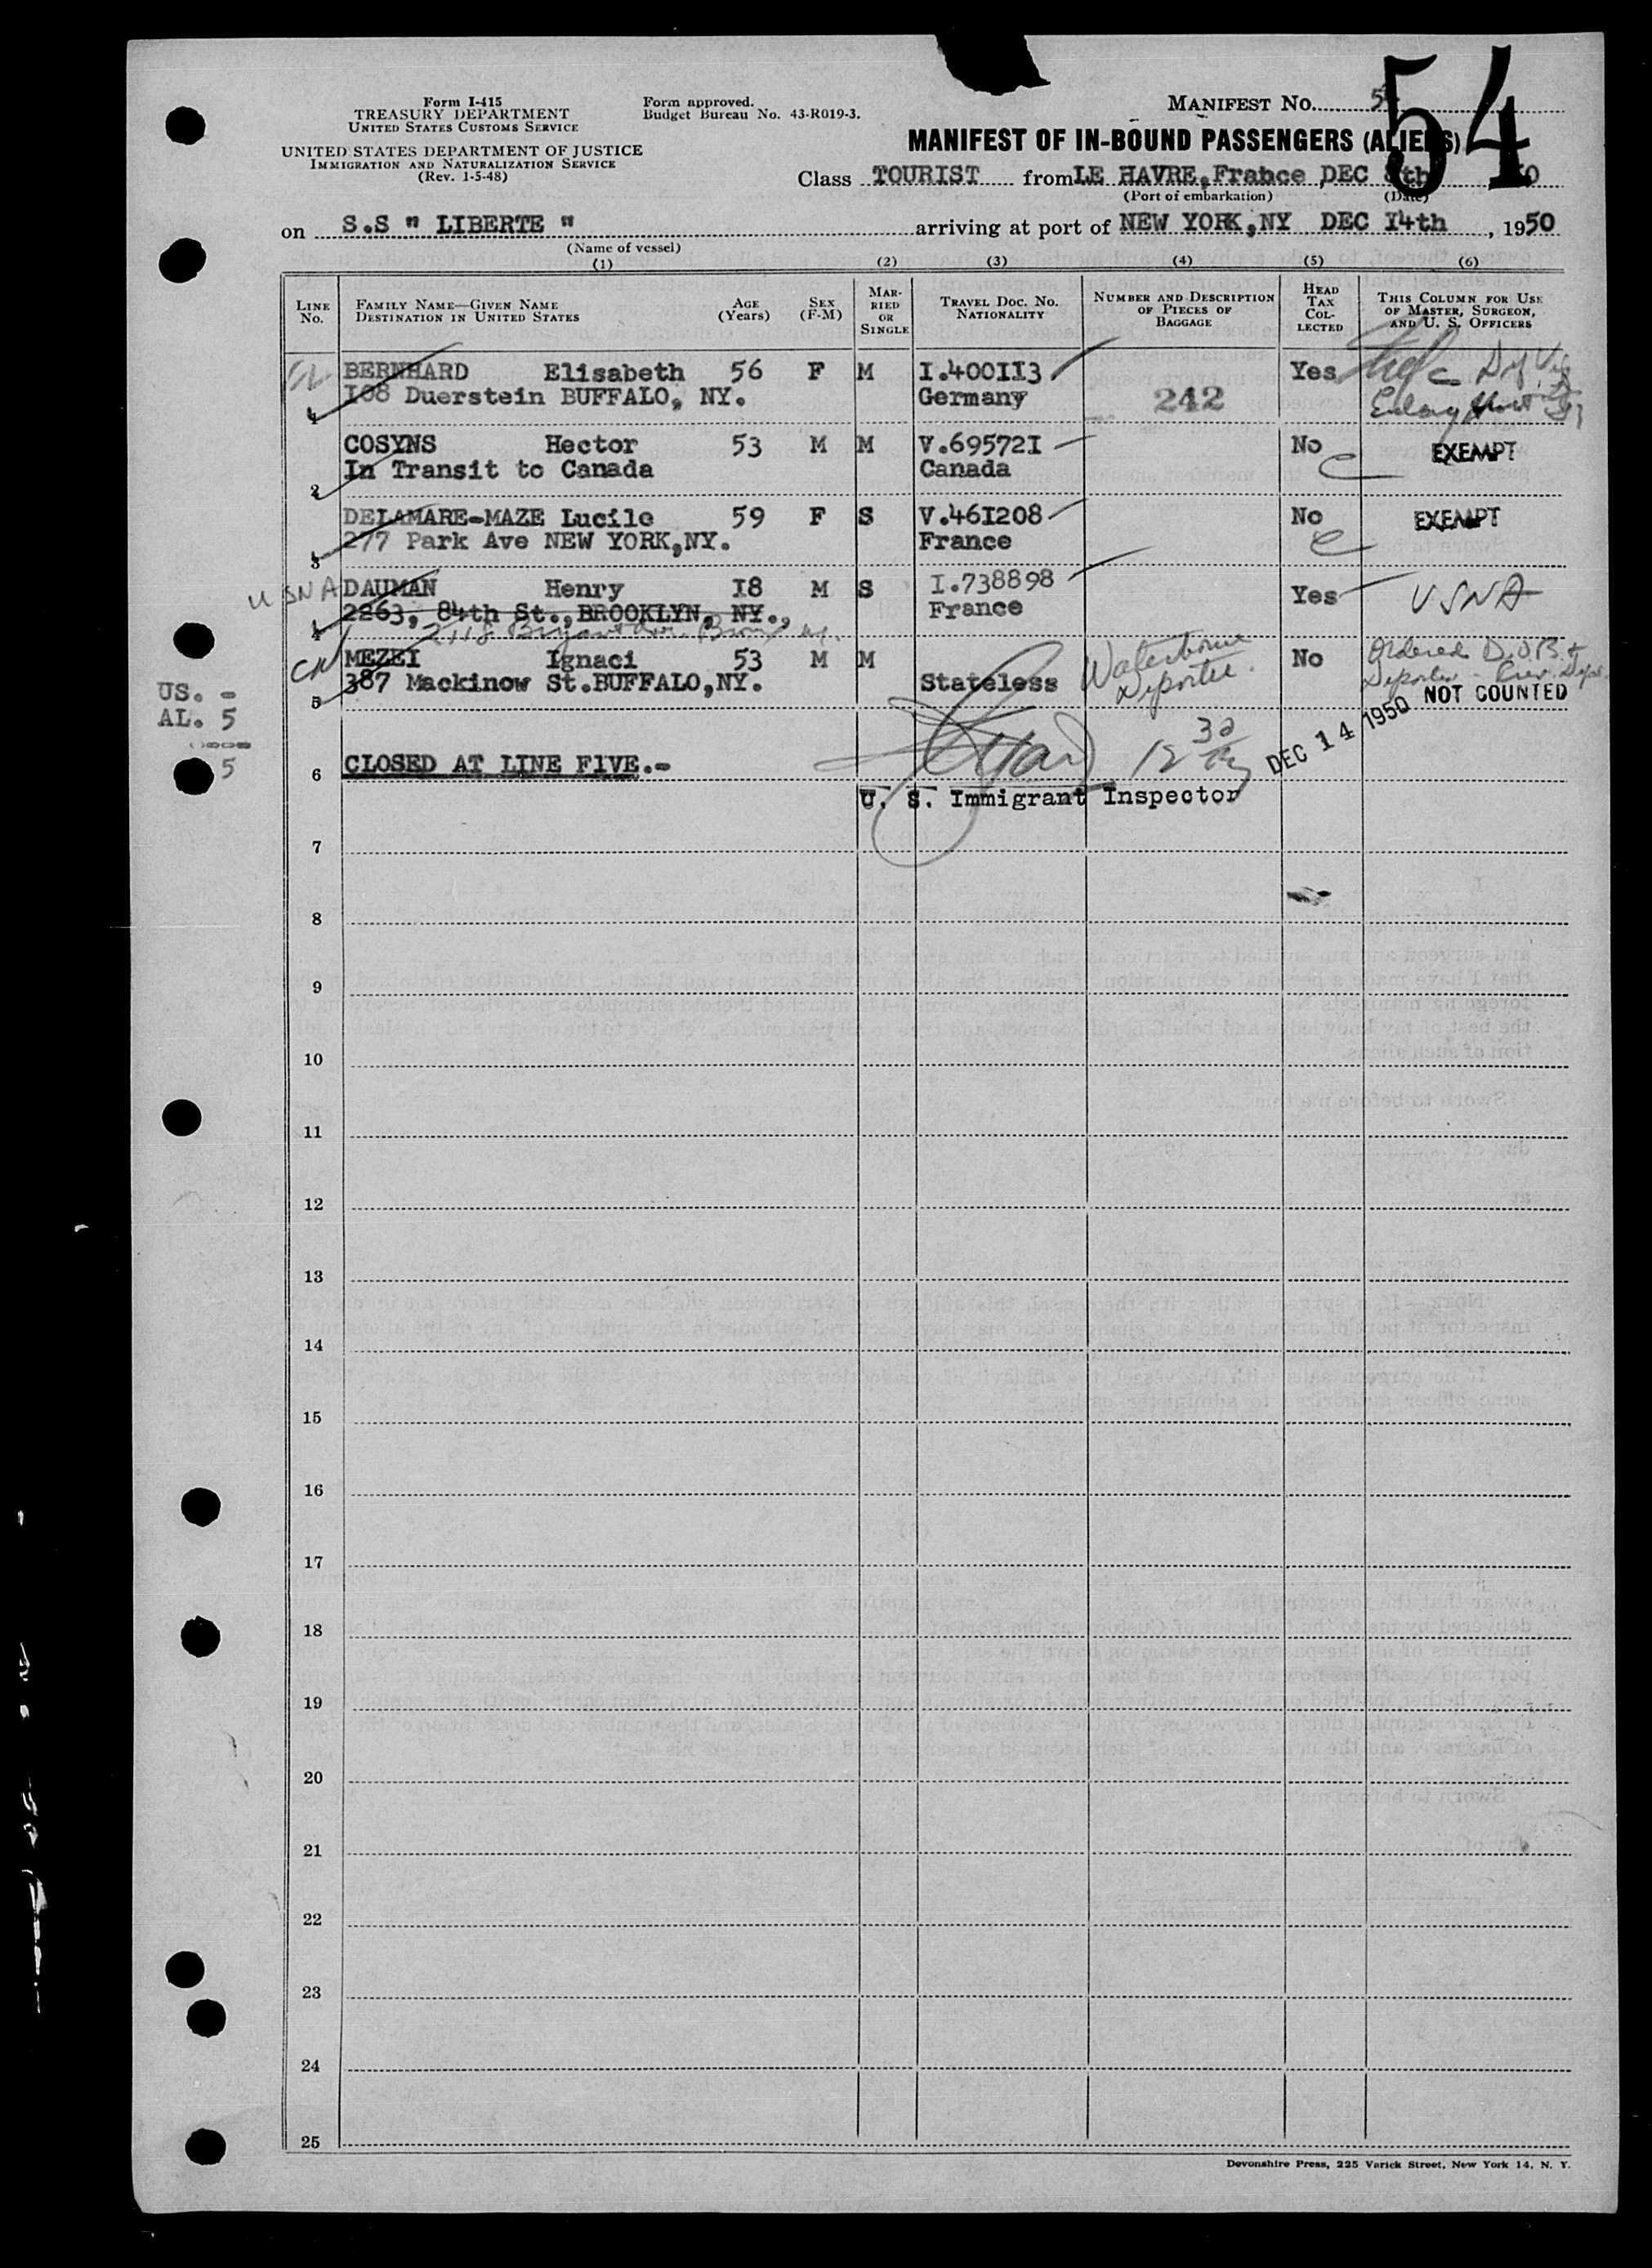 Form I-415
TREASURY DEPARTMENT
UNITED STATES CUSTOMS SERVICE
UNITED STATES DEPARTMENT OF JUSTICE
IMMIGRATION AND NATURALIZATION SERVICE
(Rev. 1-5-48)
Form approved.
Budget Bureau No. 43-R019-3.
MANIFEST NO.
54
MANIFEST OF IN-BOUND PASSENGERS (ALIENS)
Class TOURIST from LE HAVRE, France DEC 8th
(Port of embarkation) (Date)
on S.S " LIBERTE " arriving at port of NEW YORK, NY DEC I4th, 1950
(Name of vessel)
(1) (2) (3) (4) (5) (6)
LINE No. FAMILY NAME—GIVEN NAME DESTINATION IN UNITED STATES AGE (Years) SEX (F-M) MARRIED OR SINGLE TRAVEL DOC. NO. NATIONALITY NUMBER AND DESCRIPTION OF PIECES OF BAGGAGE HEAD TAX COLLECTED THIS COLUMN FOR USE OF MASTER, SURGEON, AND U. S. OFFICERS
BERNHARD Elisabeth 56 F M I.400II3 Yes
1 I08 Duerstein BUFFALO, NY. Germany 242
COSYNS Hector 53 M M V.69572I No EXEMPT
2 In Transit to Canada Canada
DELAMARE-MAZE Lucile 59 F S V.46I208 No EXEMPT
3 277 Park Ave NEW YORK, NY. France
USNA DAUMAN Henry I8 M S I.738898 Yes USNA
4 2263, 84th St., BROOKLYN, NY., France
2118 Bryant Ave. Bronx NY.
MEZEI Ignaci 53 M M No Ordered D.O.B. &
5 387 Mackinow St. BUFFALO, NY. Stateless Waterborne Deportee. Deportee - Prev. Depo.
US. -
AL. 5
5
NOT COUNTED
DEC 14 1950
12 30
6 CLOSED AT LINE FIVE.-
U. S. Immigrant Inspector
7
8
9
10
11
12
13
14
15
16
17
18
19
20
21
22
23
24
25
Devonshire Press, 225 Varick Street, New York 14, N. Y.